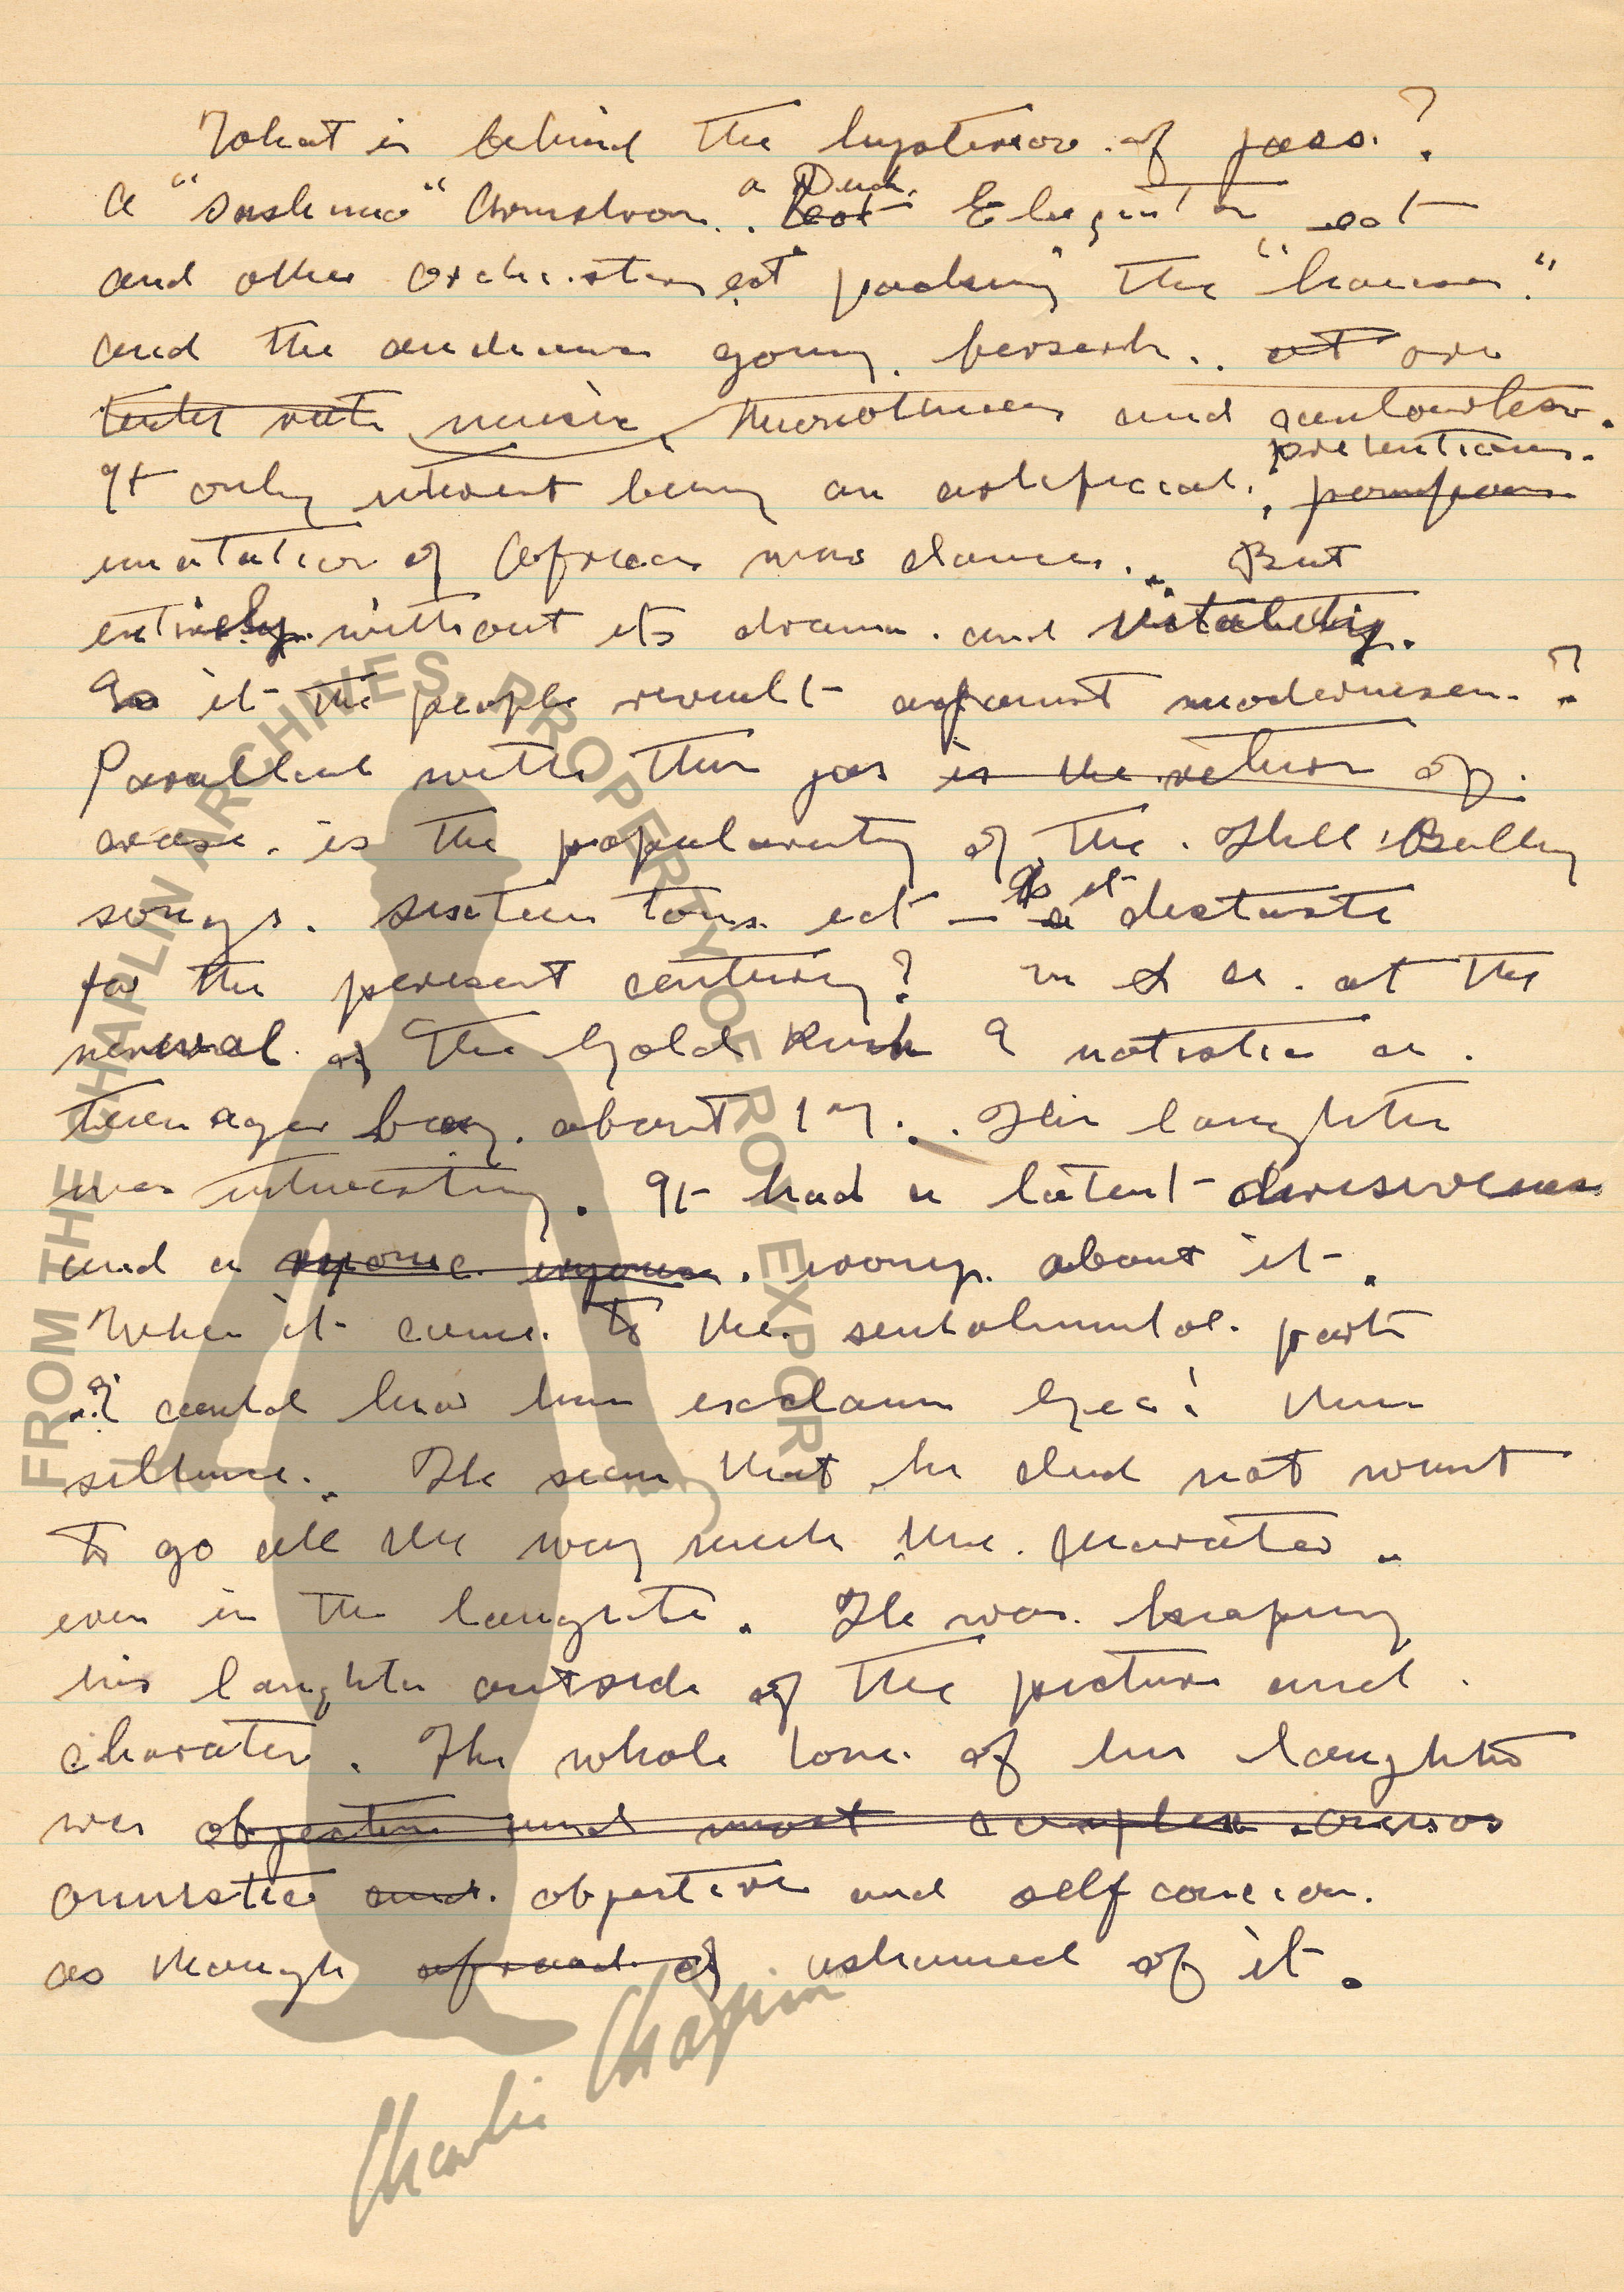 What is behind the hysteria of jass?
A "Sachmo" Armstrong. a Duke. Elegint on ect
and other orchestras ect packing the "houses."
and the audience going berserk.. at are
music, monotonous and colourless.
It only interest being an artificial, pretentious. pompous
imatation of African war dances... But
entirely without its drama. and vitality.
Is it the people revoult against modernisem.?
Parallel with this jas is the return of.
craze. is the popularity of the. Hill Billy
songs. sixteen tons ect — Is it a distaste
for the present century? in L A. at the
reviewal of The Gold Rush I notistic a.
teenager boy. about 17... His laughter
was interesting. It had a latent derisiveness
and a irony. about it.
When it came to the. sentalmental. parts
I could hear him exclaim Gee! then
sillence.. He seem that he did not want
to go all the way with the. charater.
even in the laughter. He was. keeping
his laughter outside of the picture and.
charater. The whole tone. of his laughter
was objective and most complex
and. objective and self concious.
as though afraid of ashamed of it.
FROM THE CHAPLIN ARCHIVES. PROPERTY OF ROY EXPORT
Charlie Chaplin